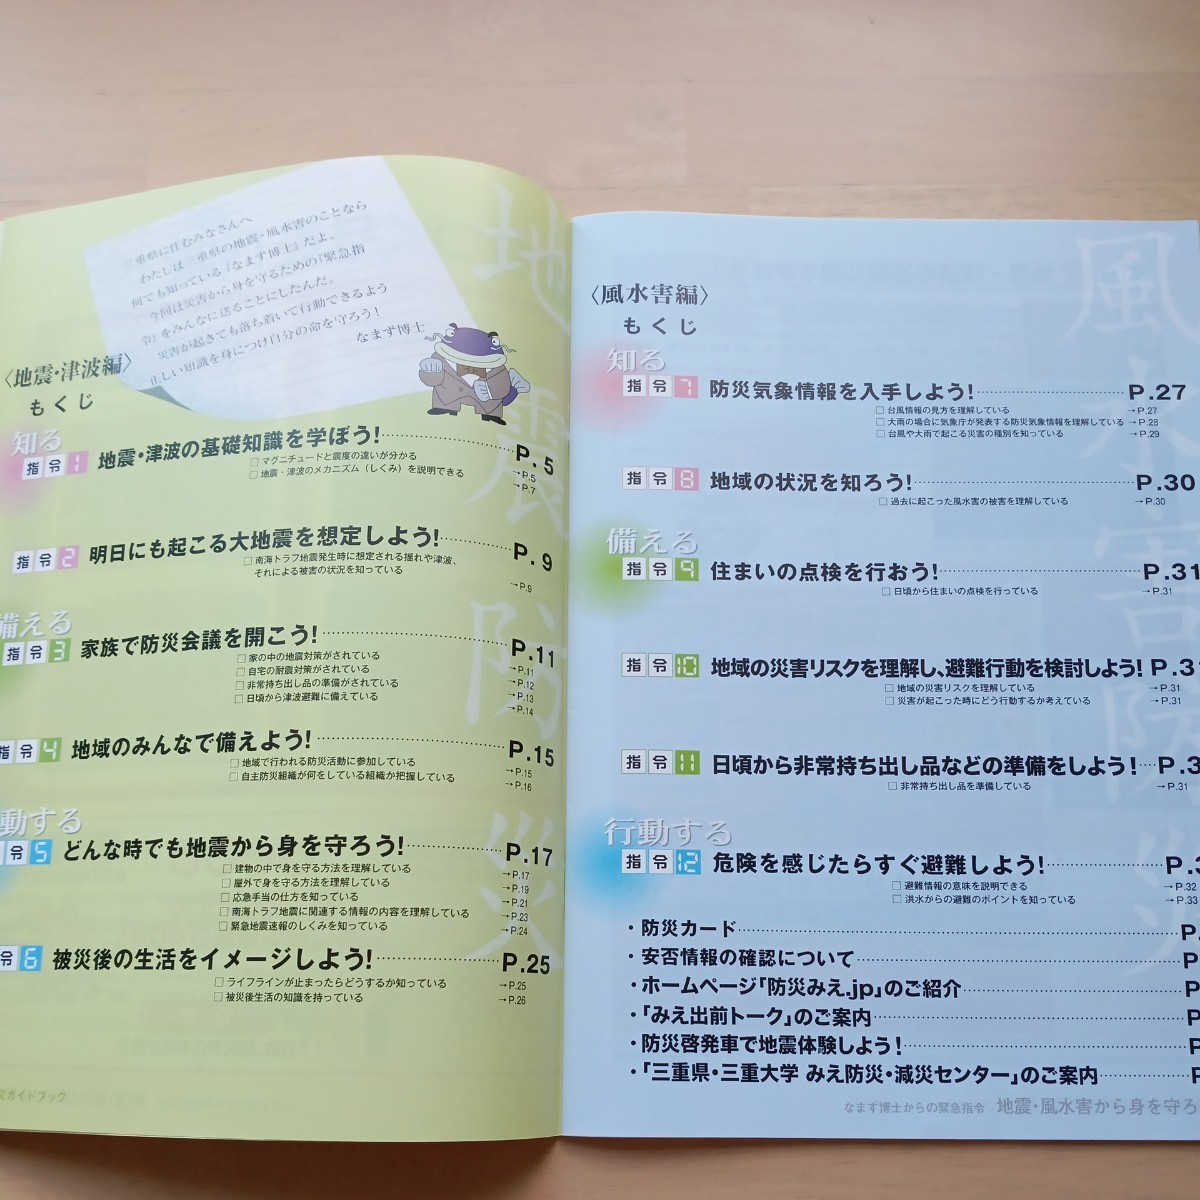 三重県に住むみなさんへ
わたしは三重県の地震・風水害のことなら
何でも知っている『なまず博士』だよ。
今回は災害から身を守るための『緊急指
令』をみんなに送ることにしたんだ。
災害が起きても落ち着いて行動できるよう
正しい知識を身につけ自分の命を守ろう!
なまず博士
地震防災
〈地震・津波編〉
もくじ
知る
指令1 地震・津波の基礎知識を学ぼう! P.5
□ マグニチュードと震度の違いが分かる →P.5
□ 地震・津波のメカニズム(しくみ)を説明できる →P.7
指令2 明日にも起こる大地震を想定しよう! P.9
□ 南海トラフ地震発生時に想定される揺れや津波、
それによる被害の状況を知っている →P.9
備える
指令3 家族で防災会議を開こう! P.11
□ 家の中の地震対策がされている →P.11
□ 自宅の耐震対策がされている →P.12
□ 非常持ち出し品の準備がされている →P.13
□ 日頃から津波避難に備えている →P.14
指令4 地域のみんなで備えよう! P.15
□ 地域で行われる防災活動に参加している →P.15
□ 自主防災組織が何をしている組織か把握している →P.16
動する
令5 どんな時でも地震から身を守ろう! P.17
□ 建物の中で身を守る方法を理解している →P.17
□ 屋外で身を守る方法を理解している →P.19
□ 応急手当の仕方を知っている →P.21
□ 南海トラフ地震に関連する情報の内容を理解している →P.23
□ 緊急地震速報のしくみを知っている →P.24
令6 被災後の生活をイメージしよう! P.25
□ ライフラインが止まったらどうするか知っている →P.25
□ 被災後生活の知識を持っている →P.26
災ガイドブック
風水害防災
〈風水害編〉
もくじ
知る
指令7 防災気象情報を入手しよう! P.27
□ 台風情報の見方を理解している →P.27
□ 大雨の場合に気象庁が発表する防災気象情報を理解している →P.28
□ 台風や大雨で起こる災害の種別を知っている →P.29
指令8 地域の状況を知ろう! P.30
□ 過去に起こった風水害の被害を理解している →P.30
備える
指令9 住まいの点検を行おう! P.31
□ 日頃から住まいの点検を行っている →P.31
指令10 地域の災害リスクを理解し、避難行動を検討しよう! P.31
□ 地域の災害リスクを理解している →P.31
□ 災害が起こった時にどう行動するか考えている →P.31
指令11 日頃から非常持ち出し品などの準備をしよう! P.3
□ 非常持ち出し品を準備している →P.31
行動する
指令12 危険を感じたらすぐ避難しよう! P.3
□ 避難情報の意味を説明できる →P.32
□ 洪水からの避難のポイントを知っている →P.33
・防災カード P.
・安否情報の確認について P
・ホームページ「防災みえ.jp」のご紹介 P
・「みえ出前トーク」のご案内 P
・防災啓発車で地震体験しよう! P
・「三重県・三重大学 みえ防災・減災センター」のご案内 P
なまず博士からの緊急指令 地震・風水害から身を守ろ